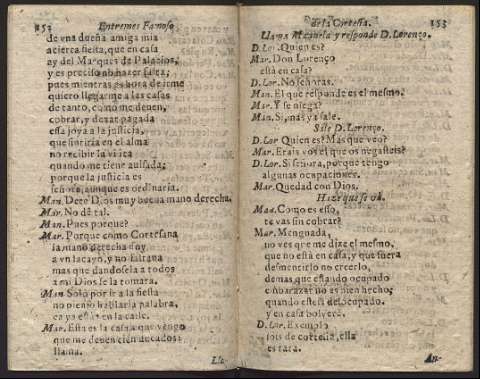 252 Entremes Famoso
de vna dueña amiga mia
a cierta fiesta, que en casa
ay del Marques de Palacios,
y es preciso no hazer falta;
pues mientras es hora de irme
quiero llegarme a las casas
de tanto, como me deuen,
cobrar, y dexar pagada
essa joya a la justicia,
que sintiria en el alma
no recibir la visita
quando me tiene auisada;
porque la justicia es
señora, aunque es ordinaria.
Man. Dete Dios muy buena mano derecha.
Mar. No dè tal.
Man. Pues porque?
Mar. Porque como Cortesana
la mano derecha doy
a vn lacayo, y no faltaua
mas que dandosela a todos
a mi Dios se la tomara.
Man. Solo por ir a la fiesta
no pienso hablarla palabra,
ea ya estàs en la calle.
Mar. Esta es la casa a que vengo
que me deuen cien ducados:
llama.
Lla-
de la Cortesia. 253
Llama Manuela y responde D. Lorenço.
D. Lor. Quien es?
Mar. Don Lorenço
està en casa?
D. Lor. No señoras.
Man. El que responde es el mesmo.
Mar. Y se niega?
Man. Si, mas ya sale.
Sale D. Lorenço.
D. Lor. Quien es? Mas que veo?
Mar. Erais vos el que os negasteis?
D. Lor. Si señora, porque tengo
algunas ocupaciones.
Mar. Quedad con Dios.
Haze que se va.
Man. Como es esso,
te vas sin cobrar?
Mar. Menguada,
no ves que me dize el mesmo,
que no està en casa, y que fuera
desmentirlo no creerlo,
demas, que estando ocupado
embarazar no es bien hecho;
quando estè desocupado,
y en casa bolverè.
D. Lor. Exemplo
sois de cortesia, ella
es rara.